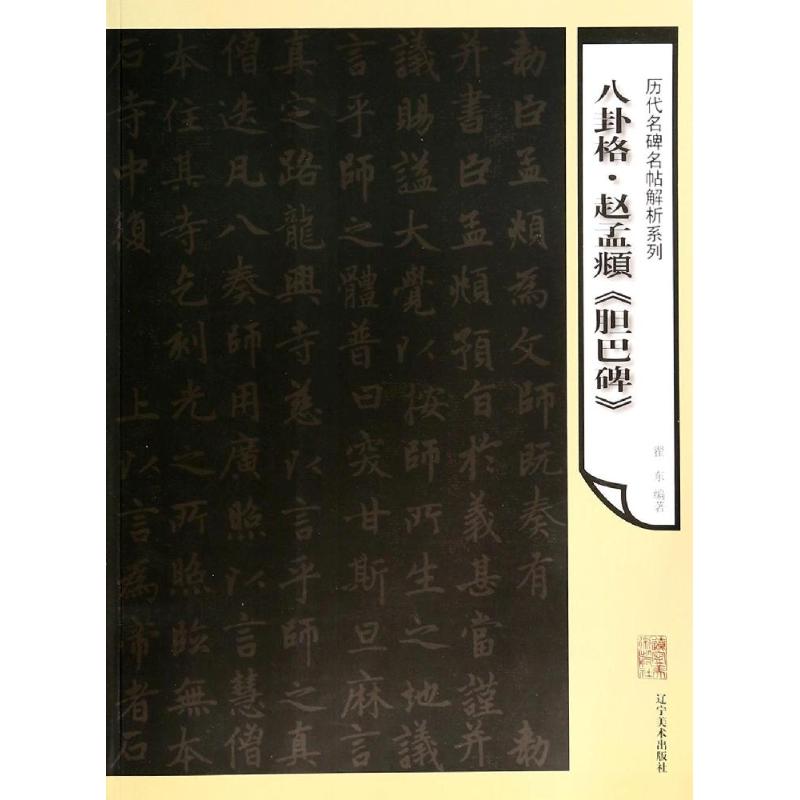 历代名碑名帖解析系列
八卦格·赵孟頫《胆巴碑》
翟东 编著
辽宁美术出版社
勑臣孟頫為文師既奏有 勑
并書臣孟頫預旨於義甚當謹并
議賜謚大覺以按師所生之地議
言乎師之體普曰突甘斯旦麻言
真定路龍興寺慈以言乎師之真
僧迭凡八奏師用廣照以言慧僧
本住其寺乞刻光之所照臨無本
石寺中復 上以言為帝者石